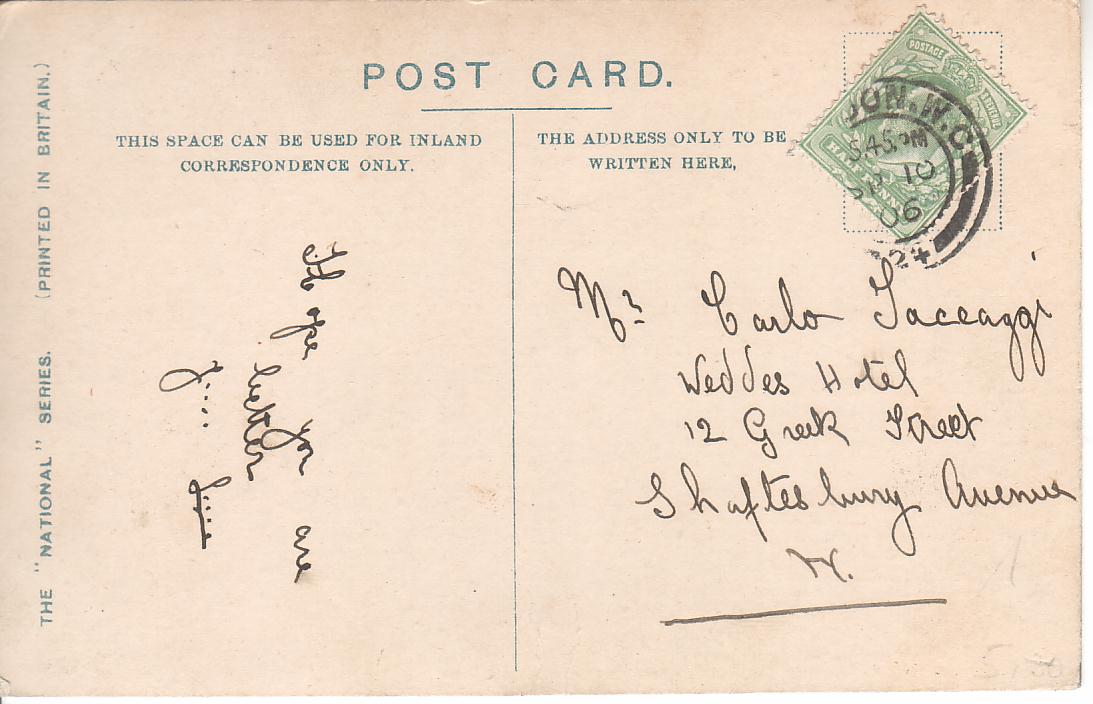 POST CARD.
THIS SPACE CAN BE USED FOR INLAND
CORRESPONDENCE ONLY.
THE ADDRESS ONLY TO BE
WRITTEN HERE,
THE "NATIONAL" SERIES. (PRINTED IN BRITAIN.)
POSTAGE
REVENUE
HALF PENNY
DON. W.C.
5.45 PM
SP 10
06
24
Hope you are
better
Mr Carlo Taceaggi
Weddes Hotel
12 Greek Street
Shaftesbury Avenue
W.